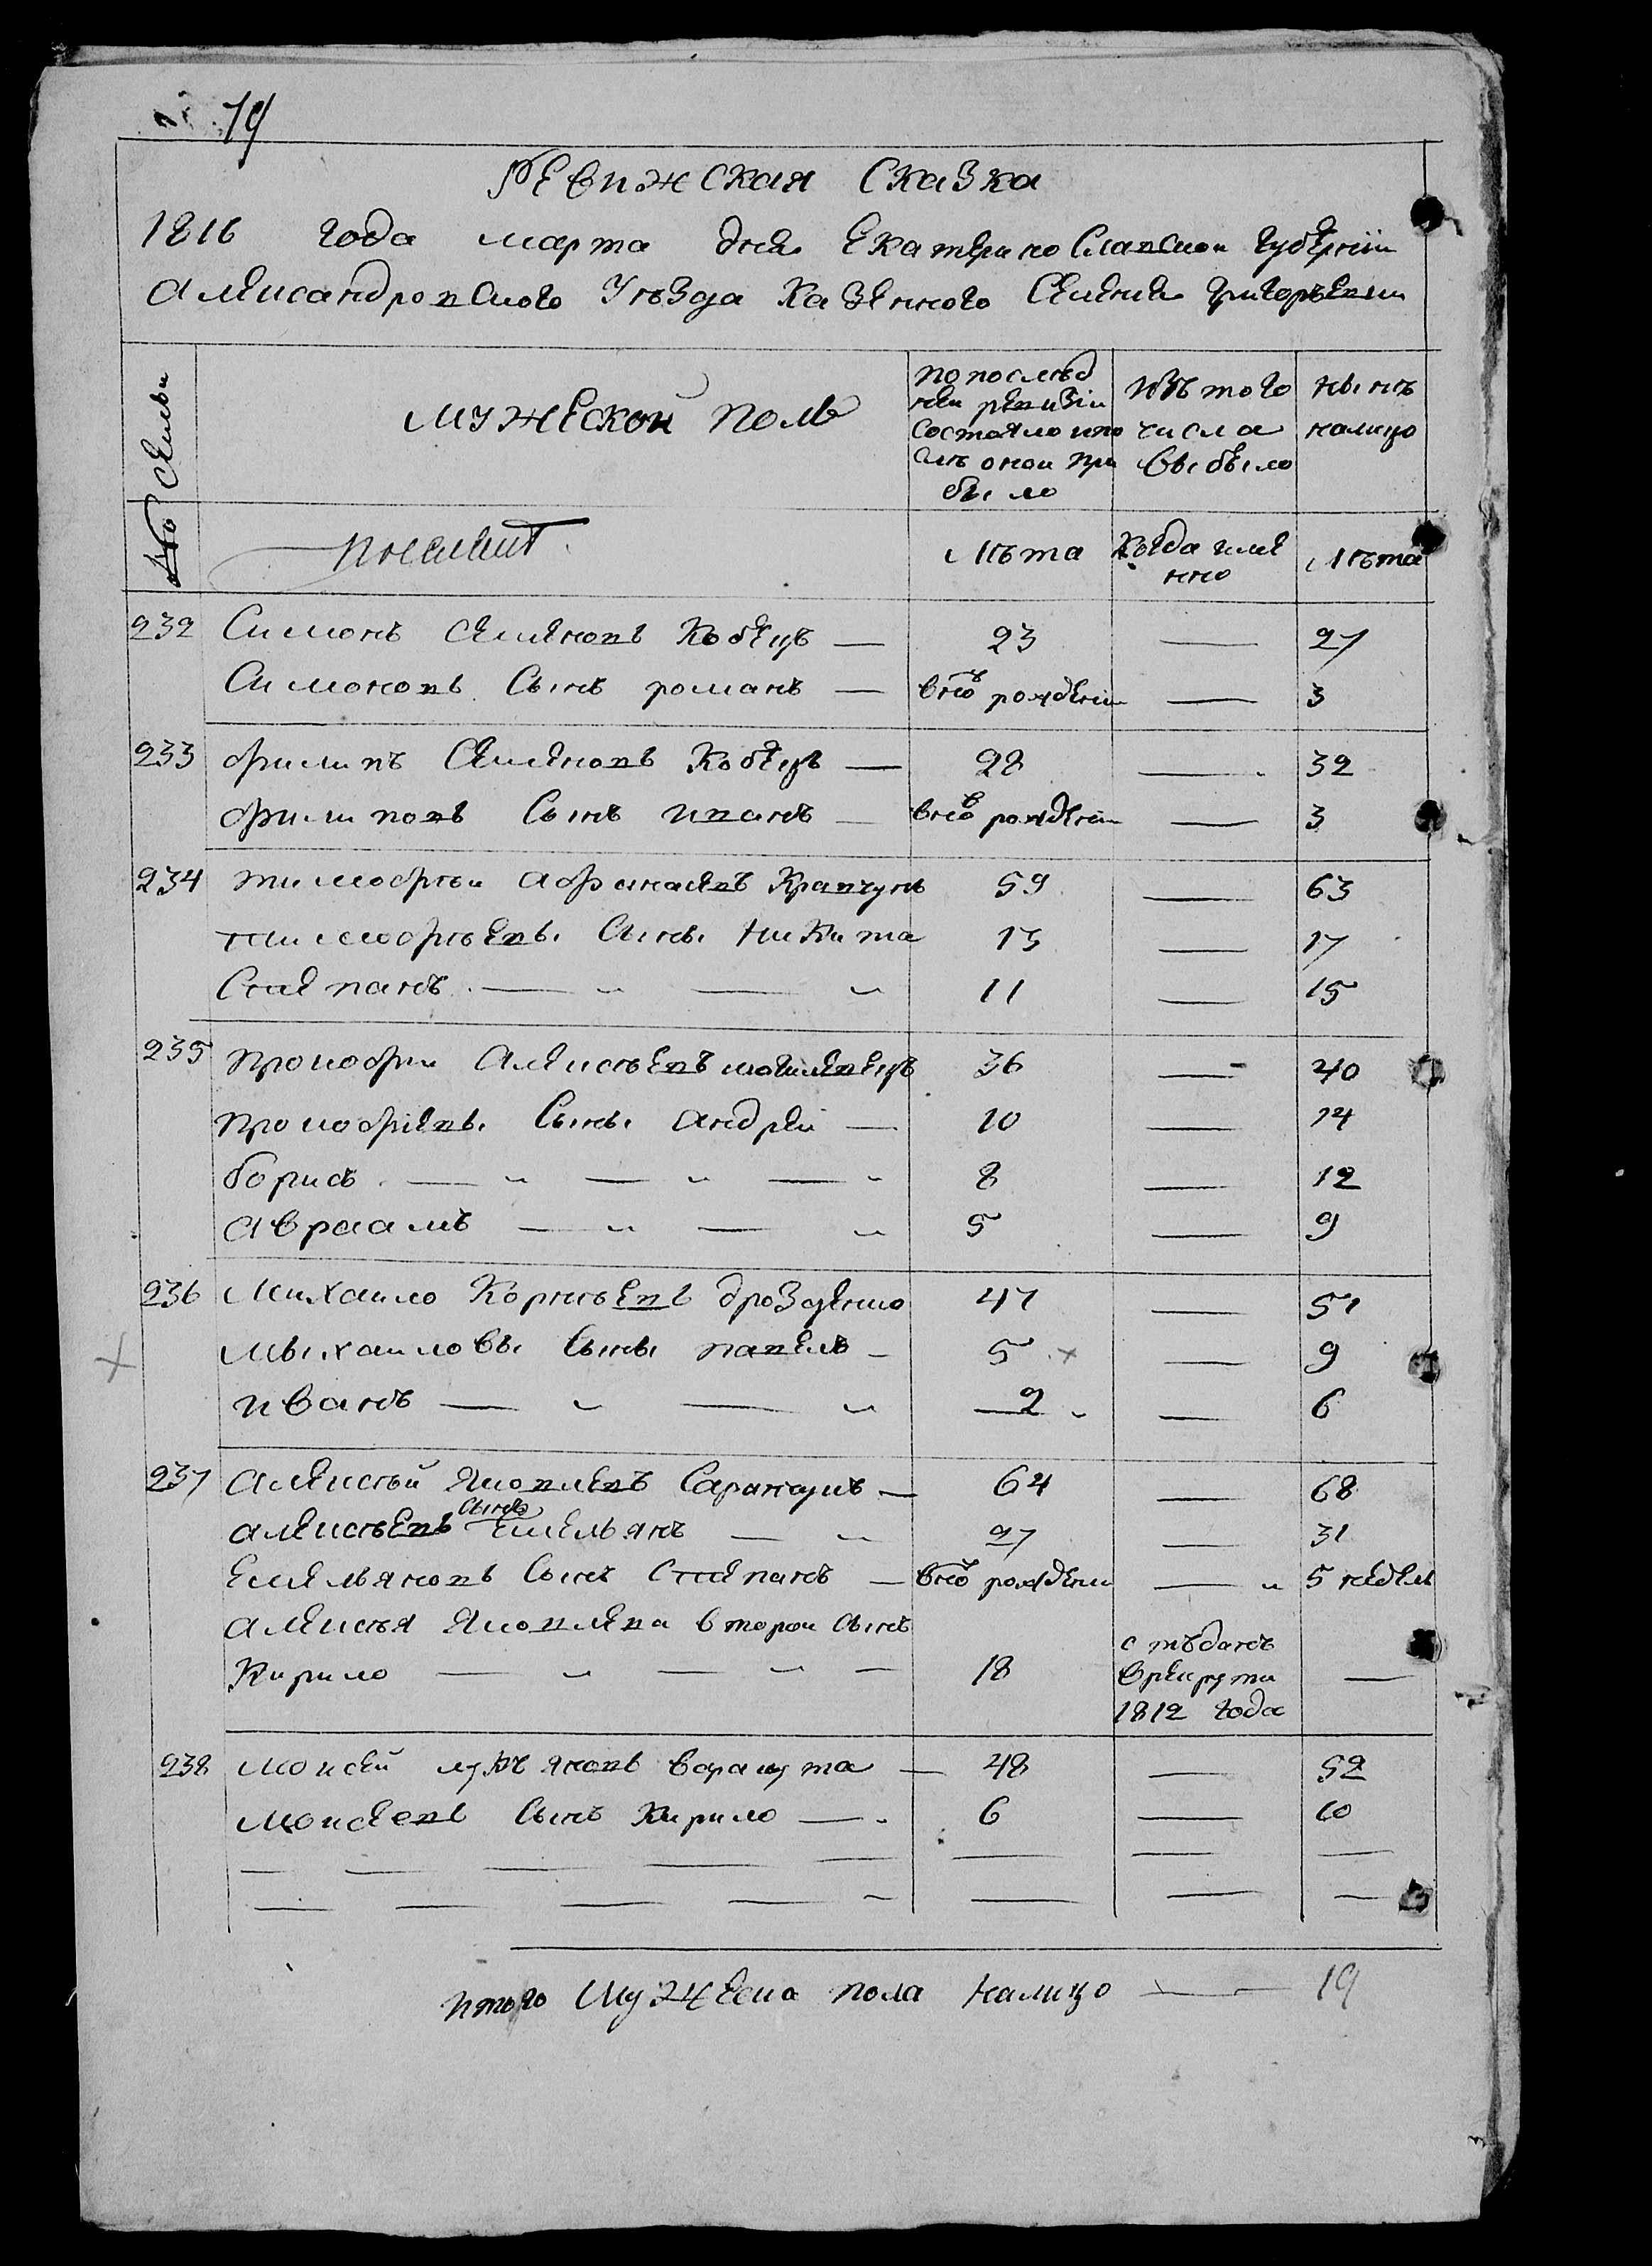 79
Ревижская Сказка
1816 года марта дня Екатеринославской губерніи
Александровского Уѣзда Казенного Селения Григорьевки
№ Семьи
Мужеской полъ
по послѣд
ней ревизіи
состояло и по
слѣ оной при
было
изъ того
числа
выбыло
нынѣ
налицо
Лѣта
Когда име
нно
Лѣта
232 Симонъ Семеновъ Кобецъ — 23 — 27
Симоновъ Сынъ романъ — внов рожденъ — 3
233 Филипъ Семеновъ Кобецъ — 28 — 32
Филиповъ Сынъ иванъ — внов рожденъ — 3
234 Тимофѣй Афанаевъ Кравчунъ 59 — 63
Тимофѣевы Сыны Никита 13 — 17
Степанъ — „ — „ 11 — 15
235 Прокофи Алексѣевъ могилевецъ 36 — 40
Прокофіевы Сыны андрей — 10 — 14
борисъ — „ — „ — „ 8 — 12
авраамъ — „ — „ 5 — 9
236 Михаило Корнѣевъ дрозденко 47 — 51
Михаиловы Сыны павелъ — 5 × — 9
иванъ — „ — „ 2 — 6
237 Алексѣй Яковлевъ — 64 — 68
алексѣевъ сынъ Емельянъ — „ 27 — 31
Емельяновъ Сынъ Степанъ — внов рожденъ — „ 5 недель
алексѣя Яковлева второй сынъ
Кирило — „ — „ — 18 отъданъ —
врекруты
1812 года
238 моисей лукъяновъ варакута — 48 — 52
моисеевъ Сынъ Кирило — 6 — 10
итого Мужеска пола налицо — 19